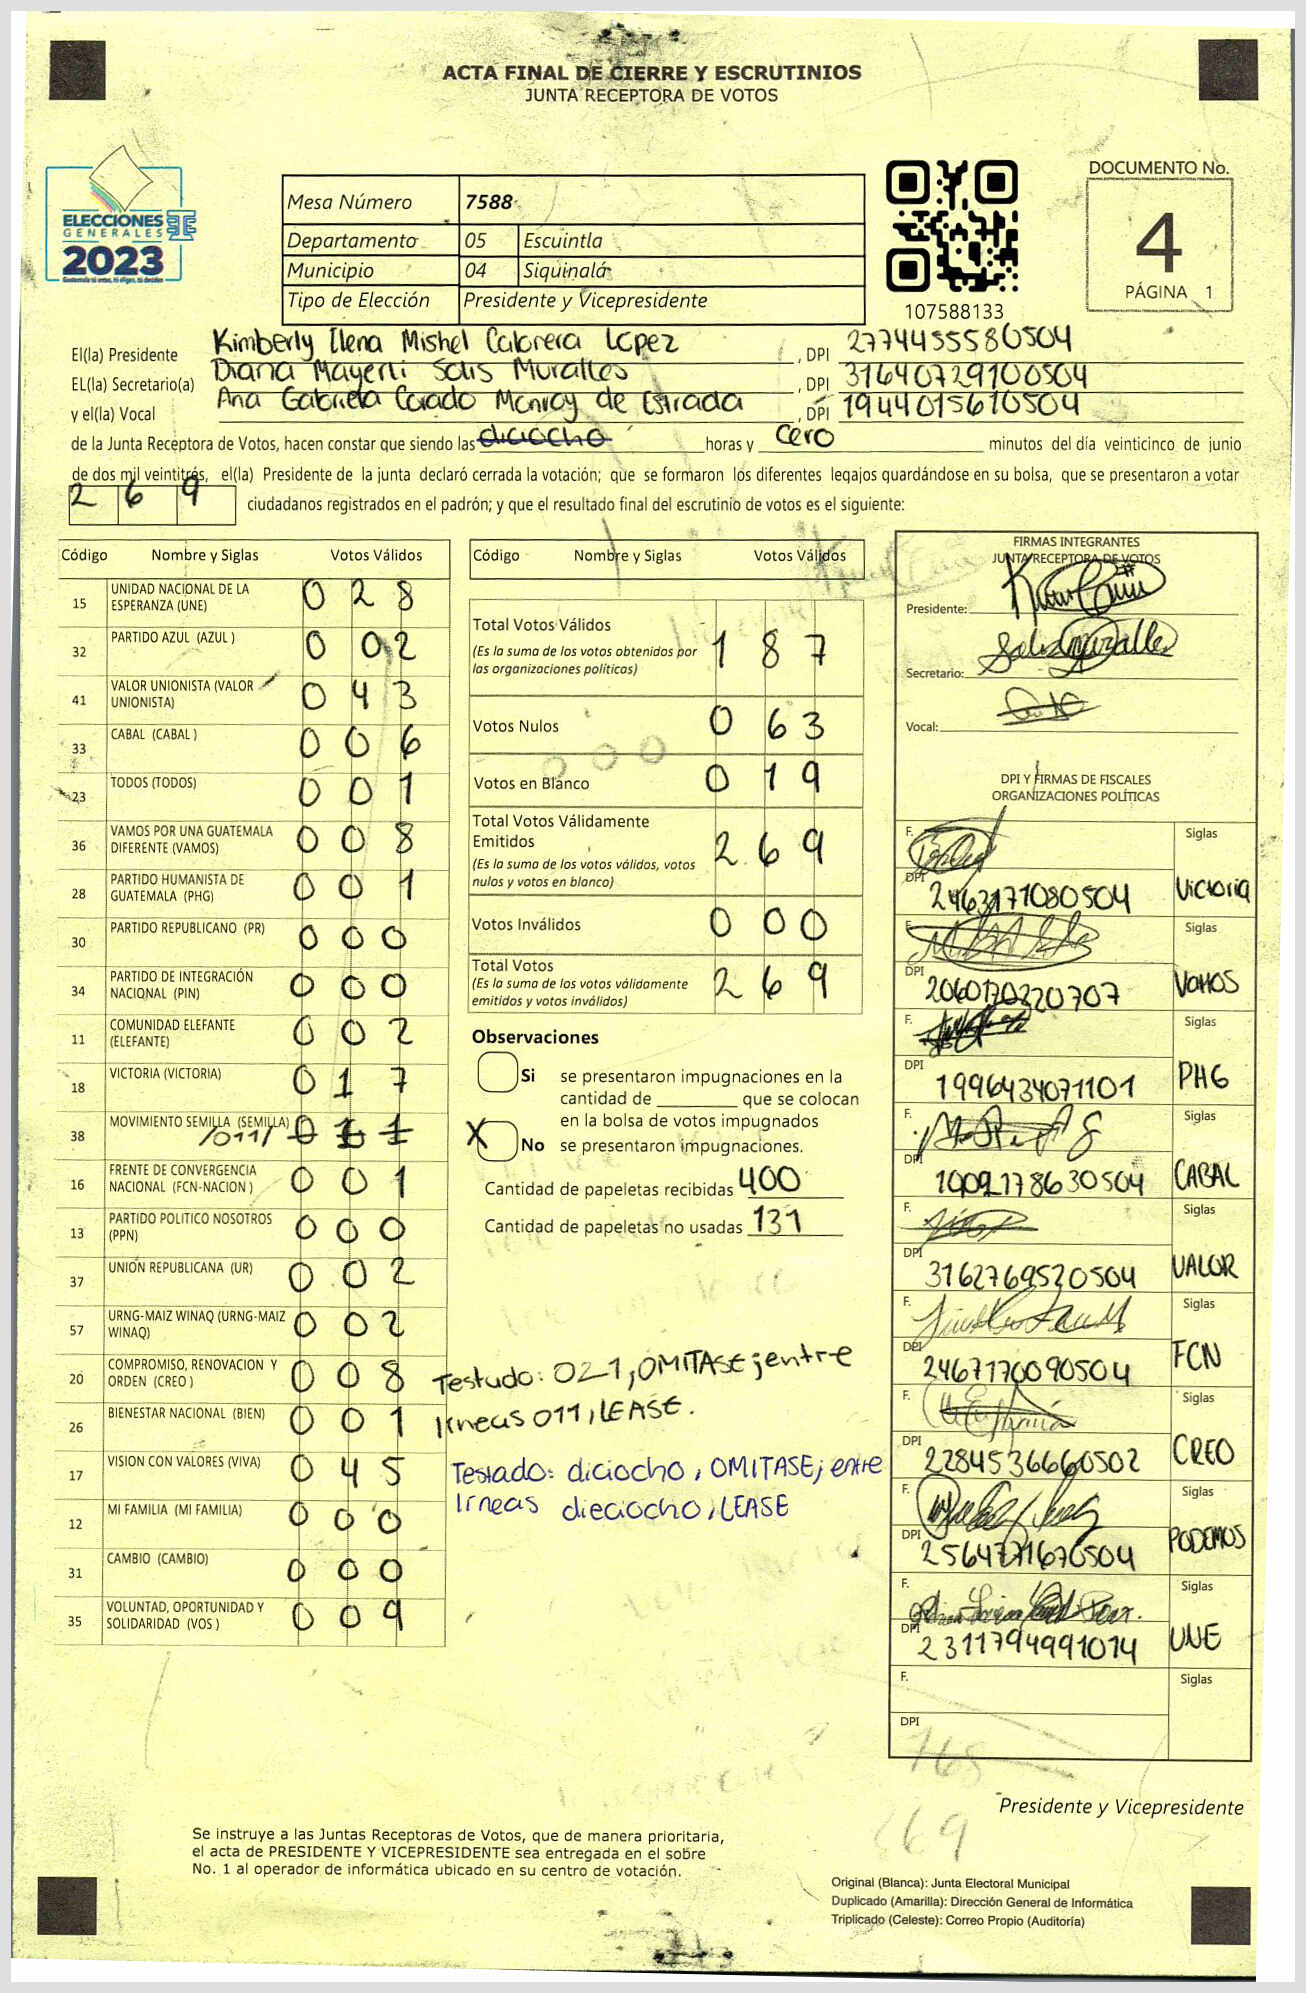 ACTA FINAL DE CIERRE Y ESCRUTINIOS
JUNTA RECEPTORA DE VOTOS
ELECCIONES
GENERALES
2023
Mesa Número 7588
Departamento 05 Escuintla
Municipio 04 Siquinalá
Tipo de Elección Presidente y Vicepresidente
107588133
DOCUMENTO No.
4
PÁGINA 1
El(la) Presidente Kimberly Ilena Mishel Cabrera Lopez, DPI 2774455580504
EL(la) Secretario(a) Diana Mayerli Solis Muralles, DPI 3164072910504
y el(la) Vocal Ana Gabriela Corado Monroy de Estrada, DPI 1944015610504
de la Junta Receptora de Votos, hacen constar que siendo las diciocho horas y cero minutos del día veinticinco de junio
de dos mil veintitrés, el(la) Presidente de la junta declaró cerrada la votación; que se formaron los diferentes legajos guardándose en su bolsa, que se presentaron a votar
2 6 9 ciudadanos registrados en el padrón; y que el resultado final del escrutinio de votos es el siguiente:
Código Nombre y Siglas Votos Válidos
15 UNIDAD NACIONAL DE LA ESPERANZA (UNE) 0 2 8
32 PARTIDO AZUL (AZUL ) 0 0 2
41 VALOR UNIONISTA (VALOR UNIONISTA) 0 4 3
33 CABAL (CABAL ) 0 0 6
23 TODOS (TODOS) 0 0 1
36 VAMOS POR UNA GUATEMALA DIFERENTE (VAMOS) 0 0 8
28 PARTIDO HUMANISTA DE GUATEMALA (PHG) 0 0 1
30 PARTIDO REPUBLICANO (PR) 0 0 0
34 PARTIDO DE INTEGRACIÓN NACIONAL (PIN) 0 0 0
11 COMUNIDAD ELEFANTE (ELEFANTE) 0 0 2
18 VICTORIA (VICTORIA) 0 1 7
38 MOVIMIENTO SEMILLA (SEMILLA) /011/
16 FRENTE DE CONVERGENCIA NACIONAL (FCN-NACION ) 0 0 1
13 PARTIDO POLITICO NOSOTROS (PPN) 0 0 0
37 UNION REPUBLICANA (UR) 0 0 2
57 URNG-MAIZ WINAQ (URNG-MAIZ WINAQ) 0 0 2
20 COMPROMISO, RENOVACION Y ORDEN (CREO ) 0 0 8
26 BIENESTAR NACIONAL (BIEN) 0 0 1
17 VISION CON VALORES (VIVA) 0 4 5
12 MI FAMILIA (MI FAMILIA) 0 0 0
31 CAMBIO (CAMBIO) 0 0 0
35 VOLUNTAD, OPORTUNIDAD Y SOLIDARIDAD (VOS ) 0 0 9
Código Nombre y Siglas Votos Válidos
Total Votos Válidos 1 8 7
(Es la suma de los votos obtenidos por
las organizaciones políticas)
Votos Nulos 0 6 3
Votos en Blanco 0 1 9
Total Votos Válidamente
Emitidos 2 6 9
(Es la suma de los votos válidos, votos
nulos y votos en blanco)
Votos Inválidos 0 0 0
Total Votos 2 6 9
(Es la suma de los votos válidamente
emitidos y votos inválidos)
Observaciones
Si se presentaron impugnaciones en la
cantidad de ________ que se colocan
en la bolsa de votos impugnados
X No se presentaron impugnaciones.
Cantidad de papeletas recibidas 400
Cantidad de papeletas no usadas 131
Testado: 021, OMITASE; entre
lineas 011, LEASE.
Testado: diciocho, OMITASE; entre
lineas dieciocho, LEASE
FIRMAS INTEGRANTES
JUNTA RECEPTORA DE VOTOS
Presidente:
Secretario:
Vocal:
DPI Y FIRMAS DE FISCALES
ORGANIZACIONES POLÍTICAS
F. Siglas
DPI 2463171080504 Victoria
F. Siglas
DPI 2060170220707 VAMOS
F. Siglas
DPI 1996434071101 PHG
F. Siglas
DPI CABAL
F. Siglas
DPI 3162769520504 VALOR
F. Siglas
DPI 2467170090504 FCN
F. Siglas
DPI 2284536660502 CREO
F. Siglas
DPI 2564771670504 PODEMOS
F. Siglas
DPI 2311794991014 UNE
F. Siglas
DPI
Presidente y Vicepresidente
Se instruye a las Juntas Receptoras de Votos, que de manera prioritaria,
el acta de PRESIDENTE Y VICEPRESIDENTE sea entregada en el sobre
No. 1 al operador de informática ubicado en su centro de votación.
Original (Blanca): Junta Electoral Municipal
Duplicado (Amarilla): Dirección General de Informática
Triplicado (Celeste): Correo Propio (Auditoría)